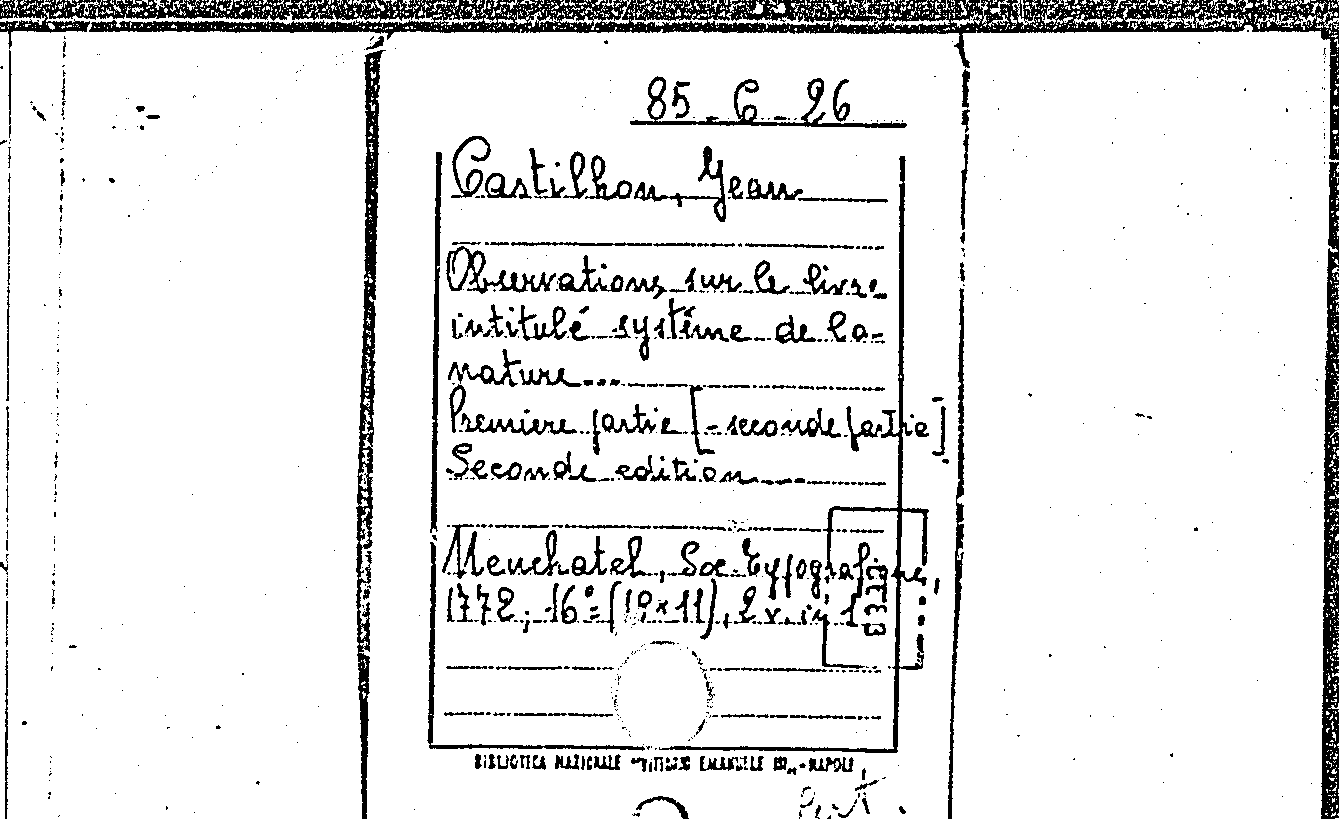 85-6-26
Castilhon, Jean
Observations sur le livre
intitulé système de la
nature...
Premiere partie [-seconde partie]
Seconde edition
Neuchatel, Soc. Typografique,
1772; 16°=(19×11), 2 v. in 1
BIBLIOTECA NAZIONALE "VITTORIO EMANUELE III" - NAPOLI